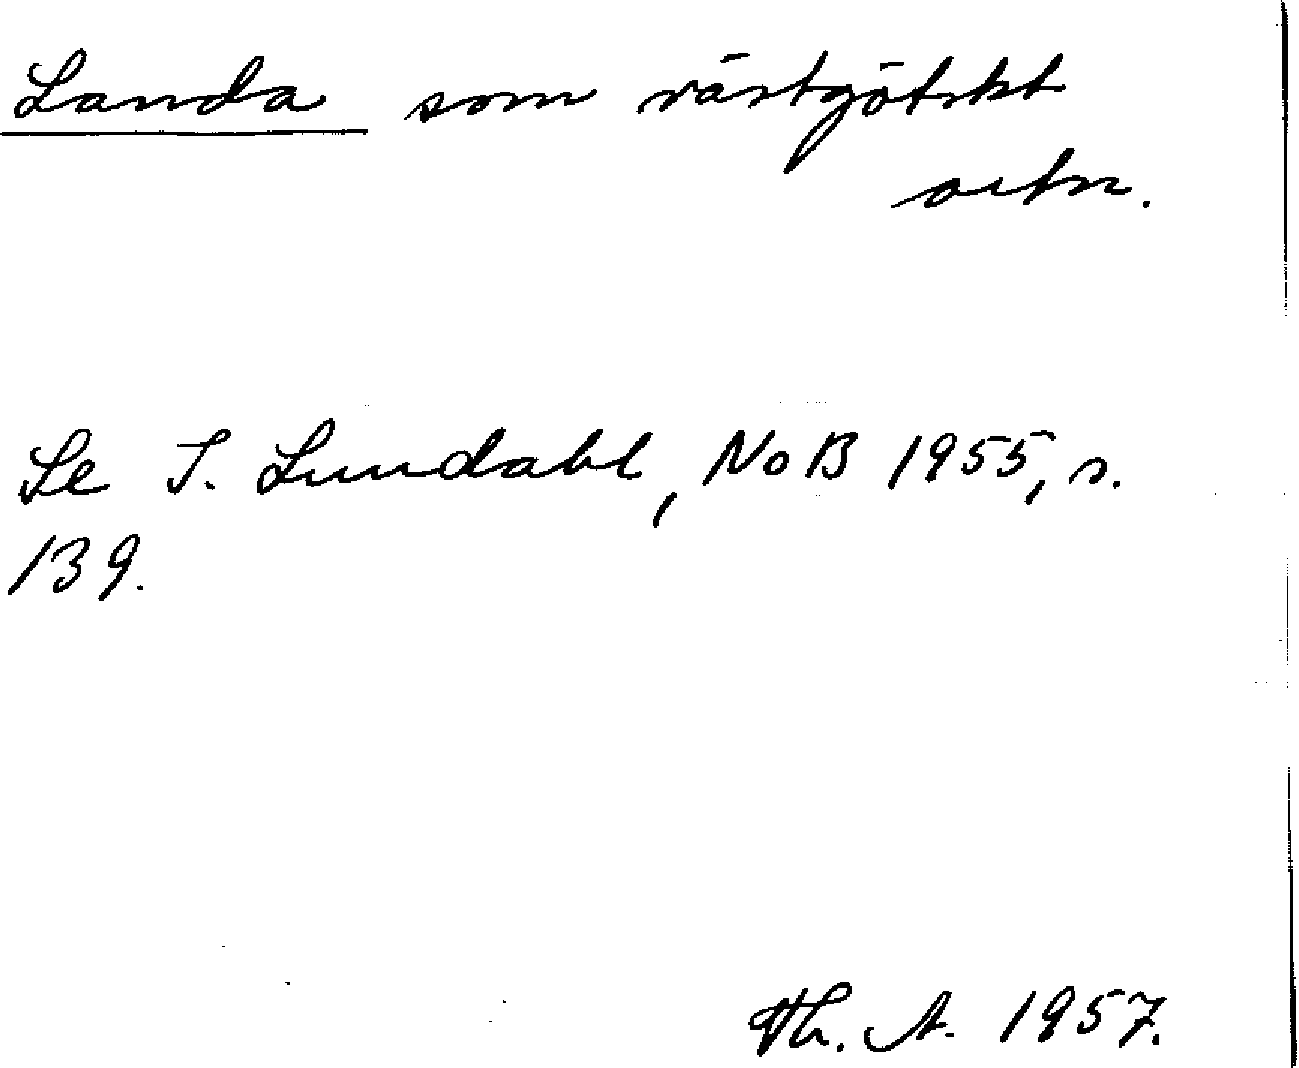 Landa som västgötskt
ortn.
Se I. Lundahl, NoB 1955, s.
139.
Th. A. 1957.